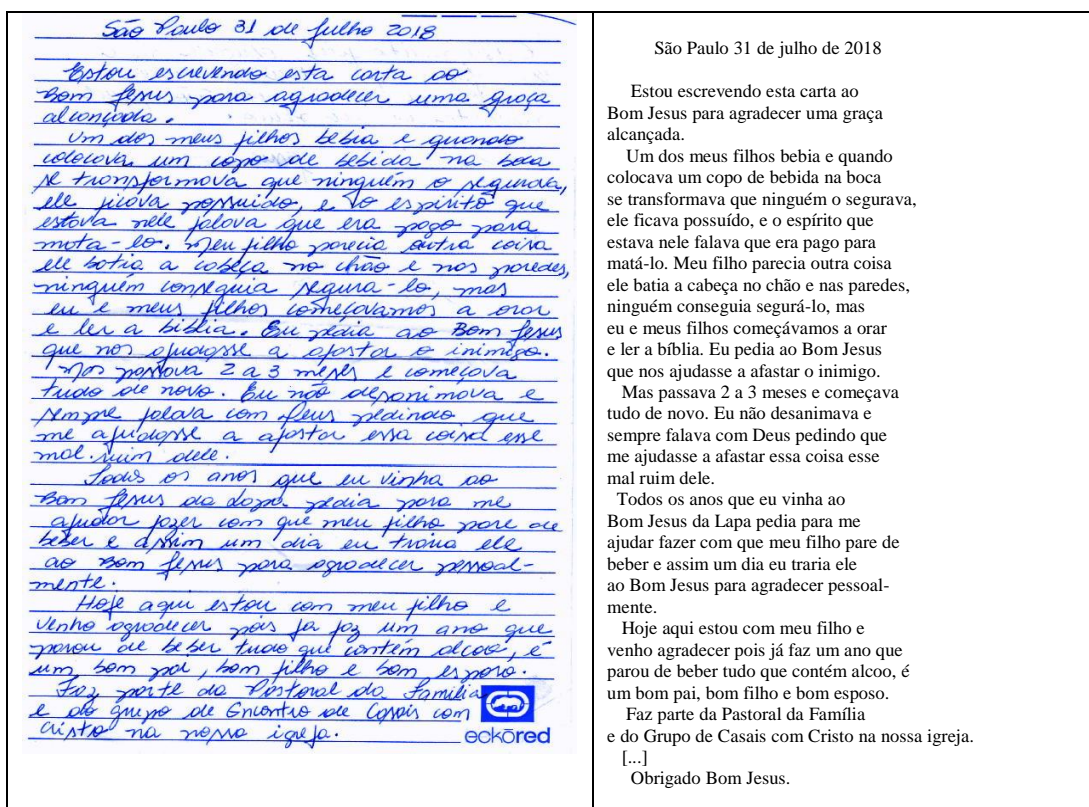 São Paulo 31 de julho 2018
Estou escrevendo esta carta ao
Bom Jesus para agradecer uma graça
alcançada.
Um dos meus filhos bebia e quando
colocava um copo de bebida na boca
se transformava que ninguém o segurava,
ele ficava possuido, e o espirito que
estava nele falava que era pago para
mata-lo. Meu filho parecia outra coisa
ele batia a cabeça no chão e nas paredes,
ninguém conseguia segura-lo, mas
eu e meus filhos começavamos a orar
e ler a biblia. Eu pedia ao Bom Jesus
que nos ajudasse a afastar o inimigo.
Mas passava 2 a 3 meses e começava
tudo de novo. Eu não desanimava e
sempre falava com Deus pedindo que
me ajudasse a afastar essa coisa esse
mal ruim dele.
Todos os anos que eu vinha ao
Bom Jesus da Lapa pedia para me
ajudar fazer com que meu filho pare de
beber e assim um dia eu traria ele
ao Bom Jesus para agradecer pessoal-
mente.
Hoje aqui estou com meu filho e
venho agradecer pois ja faz um ano que
parou de beber tudo que contém alcoo, é
um bom pai, bom filho e bom esposo.
Faz parte da Pastoral da Família
e do grupo de Encontro de Casais com
Cristo na nossa igreja.
eckōred
São Paulo 31 de julho de 2018
Estou escrevendo esta carta ao
Bom Jesus para agradecer uma graça
alcançada.
Um dos meus filhos bebia e quando
colocava um copo de bebida na boca
se transformava que ninguém o segurava,
ele ficava possuído, e o espírito que
estava nele falava que era pago para
matá-lo. Meu filho parecia outra coisa
ele batia a cabeça no chão e nas paredes,
ninguém conseguia segurá-lo, mas
eu e meus filhos começávamos a orar
e ler a bíblia. Eu pedia ao Bom Jesus
que nos ajudasse a afastar o inimigo.
Mas passava 2 a 3 meses e começava
tudo de novo. Eu não desanimava e
sempre falava com Deus pedindo que
me ajudasse a afastar essa coisa esse
mal ruim dele.
Todos os anos que eu vinha ao
Bom Jesus da Lapa pedia para me
ajudar fazer com que meu filho pare de
beber e assim um dia eu traria ele
ao Bom Jesus para agradecer pessoal-
mente.
Hoje aqui estou com meu filho e
venho agradecer pois já faz um ano que
parou de beber tudo que contém alcoo, é
um bom pai, bom filho e bom esposo.
Faz parte da Pastoral da Família
e do Grupo de Casais com Cristo na nossa igreja.
[...]
Obrigado Bom Jesus.